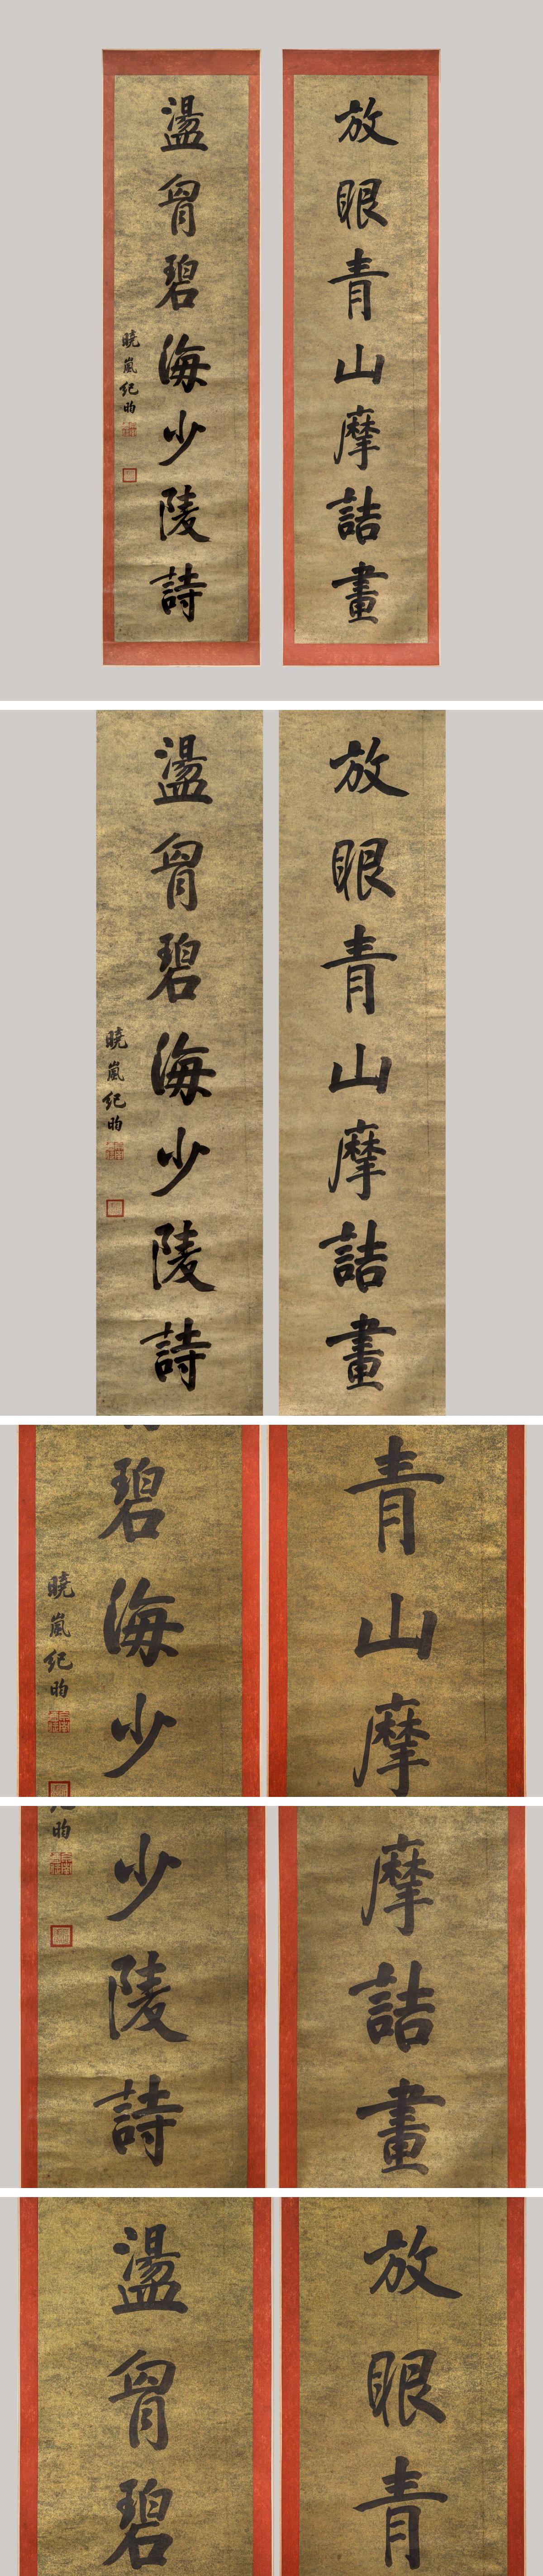 放眼青山摩詰畫
盪胷碧海少陵詩
曉嵐紀昀
放眼青山摩詰畫
盪胷碧海少陵詩
曉嵐紀昀
青山摩
碧海少
曉嵐紀昀
摩詰畫
少陵詩
昀
放眼青
盪胷碧